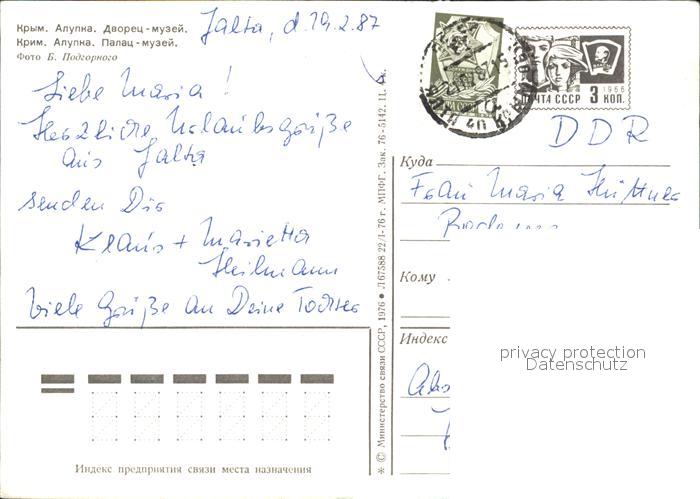 Крым. Алупка. Дворец-музей.
Крим. Алупка. Палац-музей.
Фото Б. Подгорного
Jalta, d. 19.2.87
Liebe Maria!
Herzliche Urlaubsgrüße
aus Jalta
senden Dir
Klaus + Marietta
Heilmann
Viele Grüße an Deine Tochter
Индекс предприятия связи места назначения
* © Министерство связи СССР, 1976 • Л 67588 22/I-76 г. МПФГ. Зак. 76-5142. Ц. 4.
ПОЧТА СССР 3 КОП.
1966
DDR
Куда
Frau Maria Hüttner
Кому
Индекс
privacy protection
Datenschutz